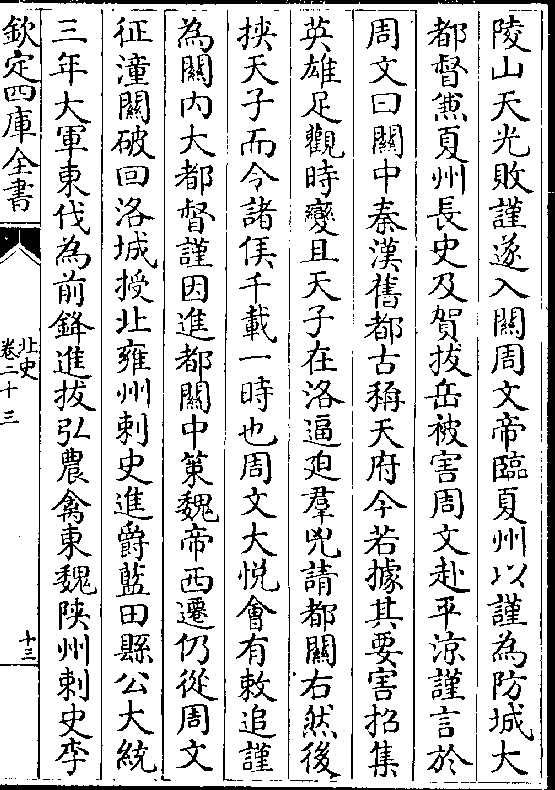 陵山天光敗謹遂入關周文帝臨夏州以謹為防城大
都督兼夏州長史及賀拔岳被害周文赴平涼謹言於
周文曰關中秦漢舊都古稱天府今若據其要害招集
英雄足觀時變且天子在洛逼廹羣兇請都關右然後
挾天子而令諸侯千載一時也周文大悅會有敕追謹
為關內大都督謹因進都關中策魏帝西遷仍從周文
征潼關破回洛城授北雍州刺史進爵藍田縣公大統
三年大軍東伐為前鋒進拔弘農禽東魏陝州刺史李
欽定四庫全書
北史
卷二十三
十三